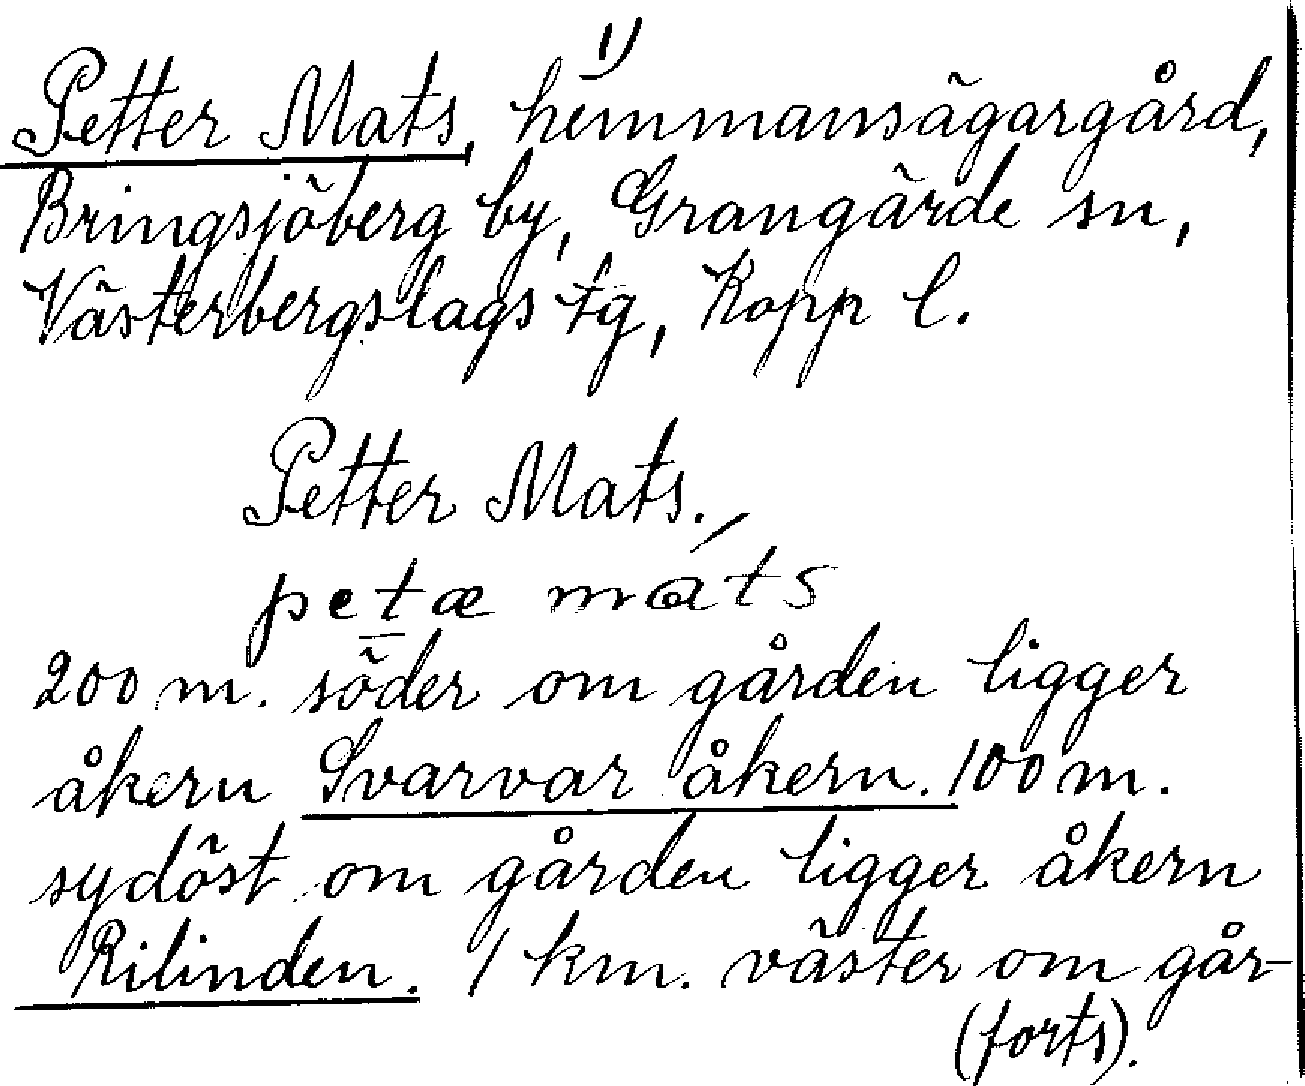 1)
Petter Mats, hemmansägargård,
Bringsjöberg by, Grangärde sn,
Västerbergslags tg, Kopp l.
Petter Mats.
petæ máts
200 m. söder om gården ligger
åkern Svarvar åkern. 100 m.
sydöst om gården ligger åkern
Rilinden. 1 km. väster om går-
(forts).